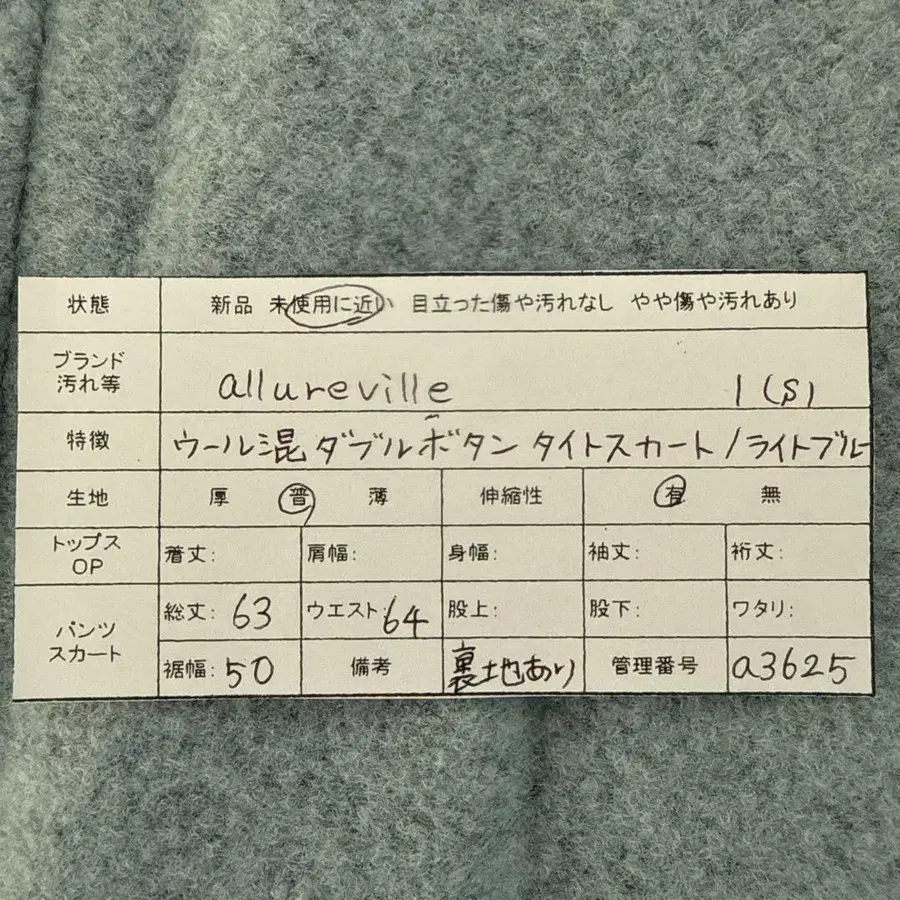 状態 新品 未使用に近い 目立った傷や汚れなし やや傷や汚れあり
ブランド
汚れ等 allureville 1(S)
特徴 ウール混ダブルボタンタイトスカート/ライトブルー
生地 厚 普 薄 伸縮性 有 無
トップス
OP 着丈: 肩幅: 身幅: 袖丈: 裄丈:
パンツ
スカート 総丈: 63 ウエスト: 64 股上: 股下: ワタリ:
裾幅: 50 備考 裏地あり 管理番号 a3625